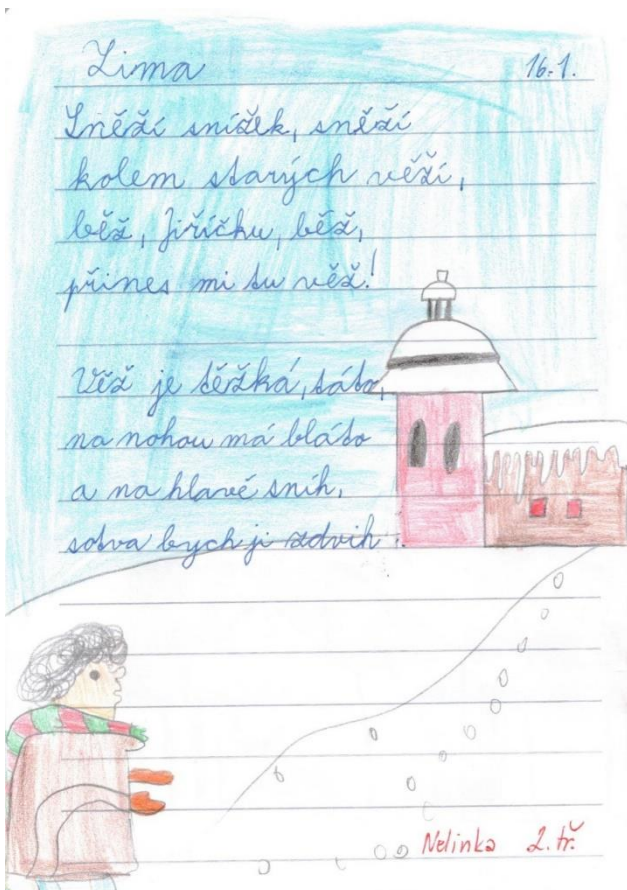 Zima 16.1.
Sněží snížek, sněží
kolem starých věží,
běž, Jiříčku, běž,
přines mi tu věž!
Věž je těžká, táto,
na nohou má bláto
a na hlavě sníh,
sotva bych ji zdvih.
Nelinka 2.tř.